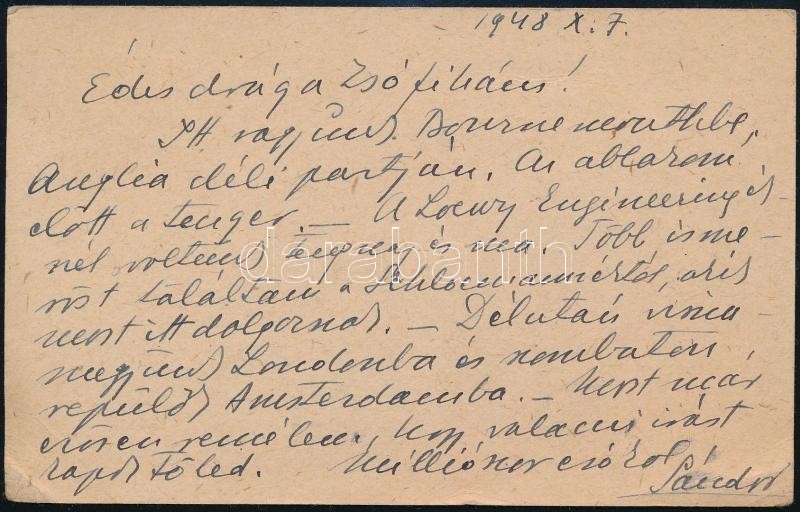 1948 X. 7.
Édes drága Zsófikám!
Itt vagyunk Bournemouthba,
Anglia déli partján. Az ablakom
előtt a tenger. — A Loewy Engineering és-
nél voltunk tegnap és ma. Több isme-
rőst találtam a Schloemannéktól, akik
most itt dolgoznak. — Délután vissza-
megyünk Londonba és szombaton
repülök Amsterdamba. — Most már
erősen remélem, hogy valami írást
kapok Tőled. Milliószor csókol
Sándor
darabanth